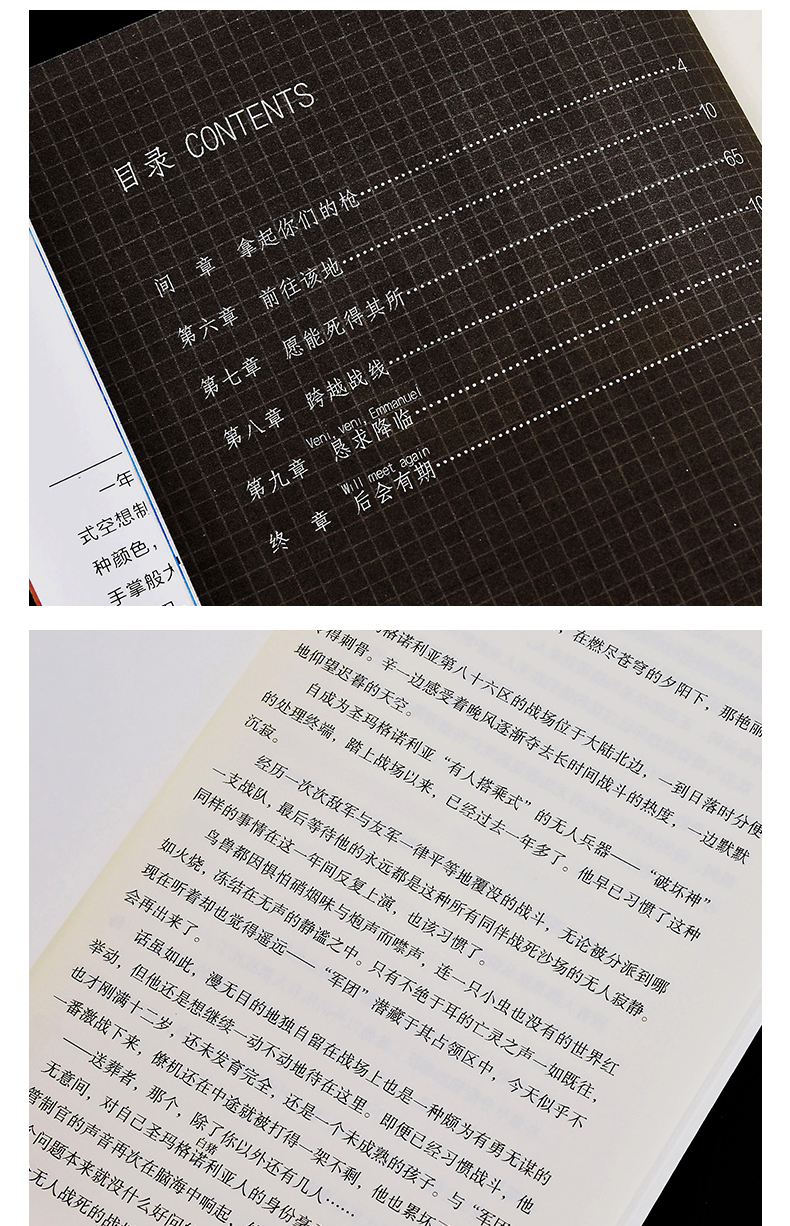 目录 CONTENTS
间 章 拿起你们的枪……4
第六章 前往该地……10
第七章 愿能死得其所……65
第八章 跨越战线……10
Veni, veni, Emmanuel
第九章 恳求降临……
Will meet again
终 章 后会有期……
一年
式空想制
种颜色，
手掌般大
，在燃尽苍穹的夕阳下，那艳丽
格诺利亚第八十六区的战场位于大陆北边，一到日落时分便
得刺骨。辛一边感受着晚风逐渐夺去长时间战斗的热度，一边默默
地仰望迟暮的天空。
自成为圣玛格诺利亚“有人搭乘式”的无人兵器——“破坏神”
的处理终端，踏上战场以来，已经过去一年多了。他早已习惯了这种
沉寂。
经历一次次敌军与友军一律平等地覆没的战斗，无论被分派到哪
一支战队，最后等待他的永远都是这种所有同伴战死沙场的无人寂静。
同样的事情在这一年间反复上演，也该习惯了。
鸟兽都因惧怕硝烟味与炮声而噤声，连一只小虫也没有的世界红
如火烧，冻结在无声的静谧之中。只有不绝于耳的亡灵之声一如既往，
现在听着却也觉得遥远——“军团”潜藏于其占领区中，今天似乎不
会再出来了。
话虽如此，漫无目的地独自留在战场上也是一种颇为有勇无谋的
举动，但他还是想继续一动不动地待在这里。即便已经习惯战斗，他
也才刚满十二岁，还未发育完全，还是一个未成熟的孩子。与“军团
一番激战下来，僚机还在中途就被打得一架不剩，他也累坏
——送葬者，那个，除了你以外还有几人……
白猪
无意间，对自己圣玛格诺利亚人的身份毫
管制官的声音再次在脑海中响起，
个问题本来就没什么好问
无人战死的战